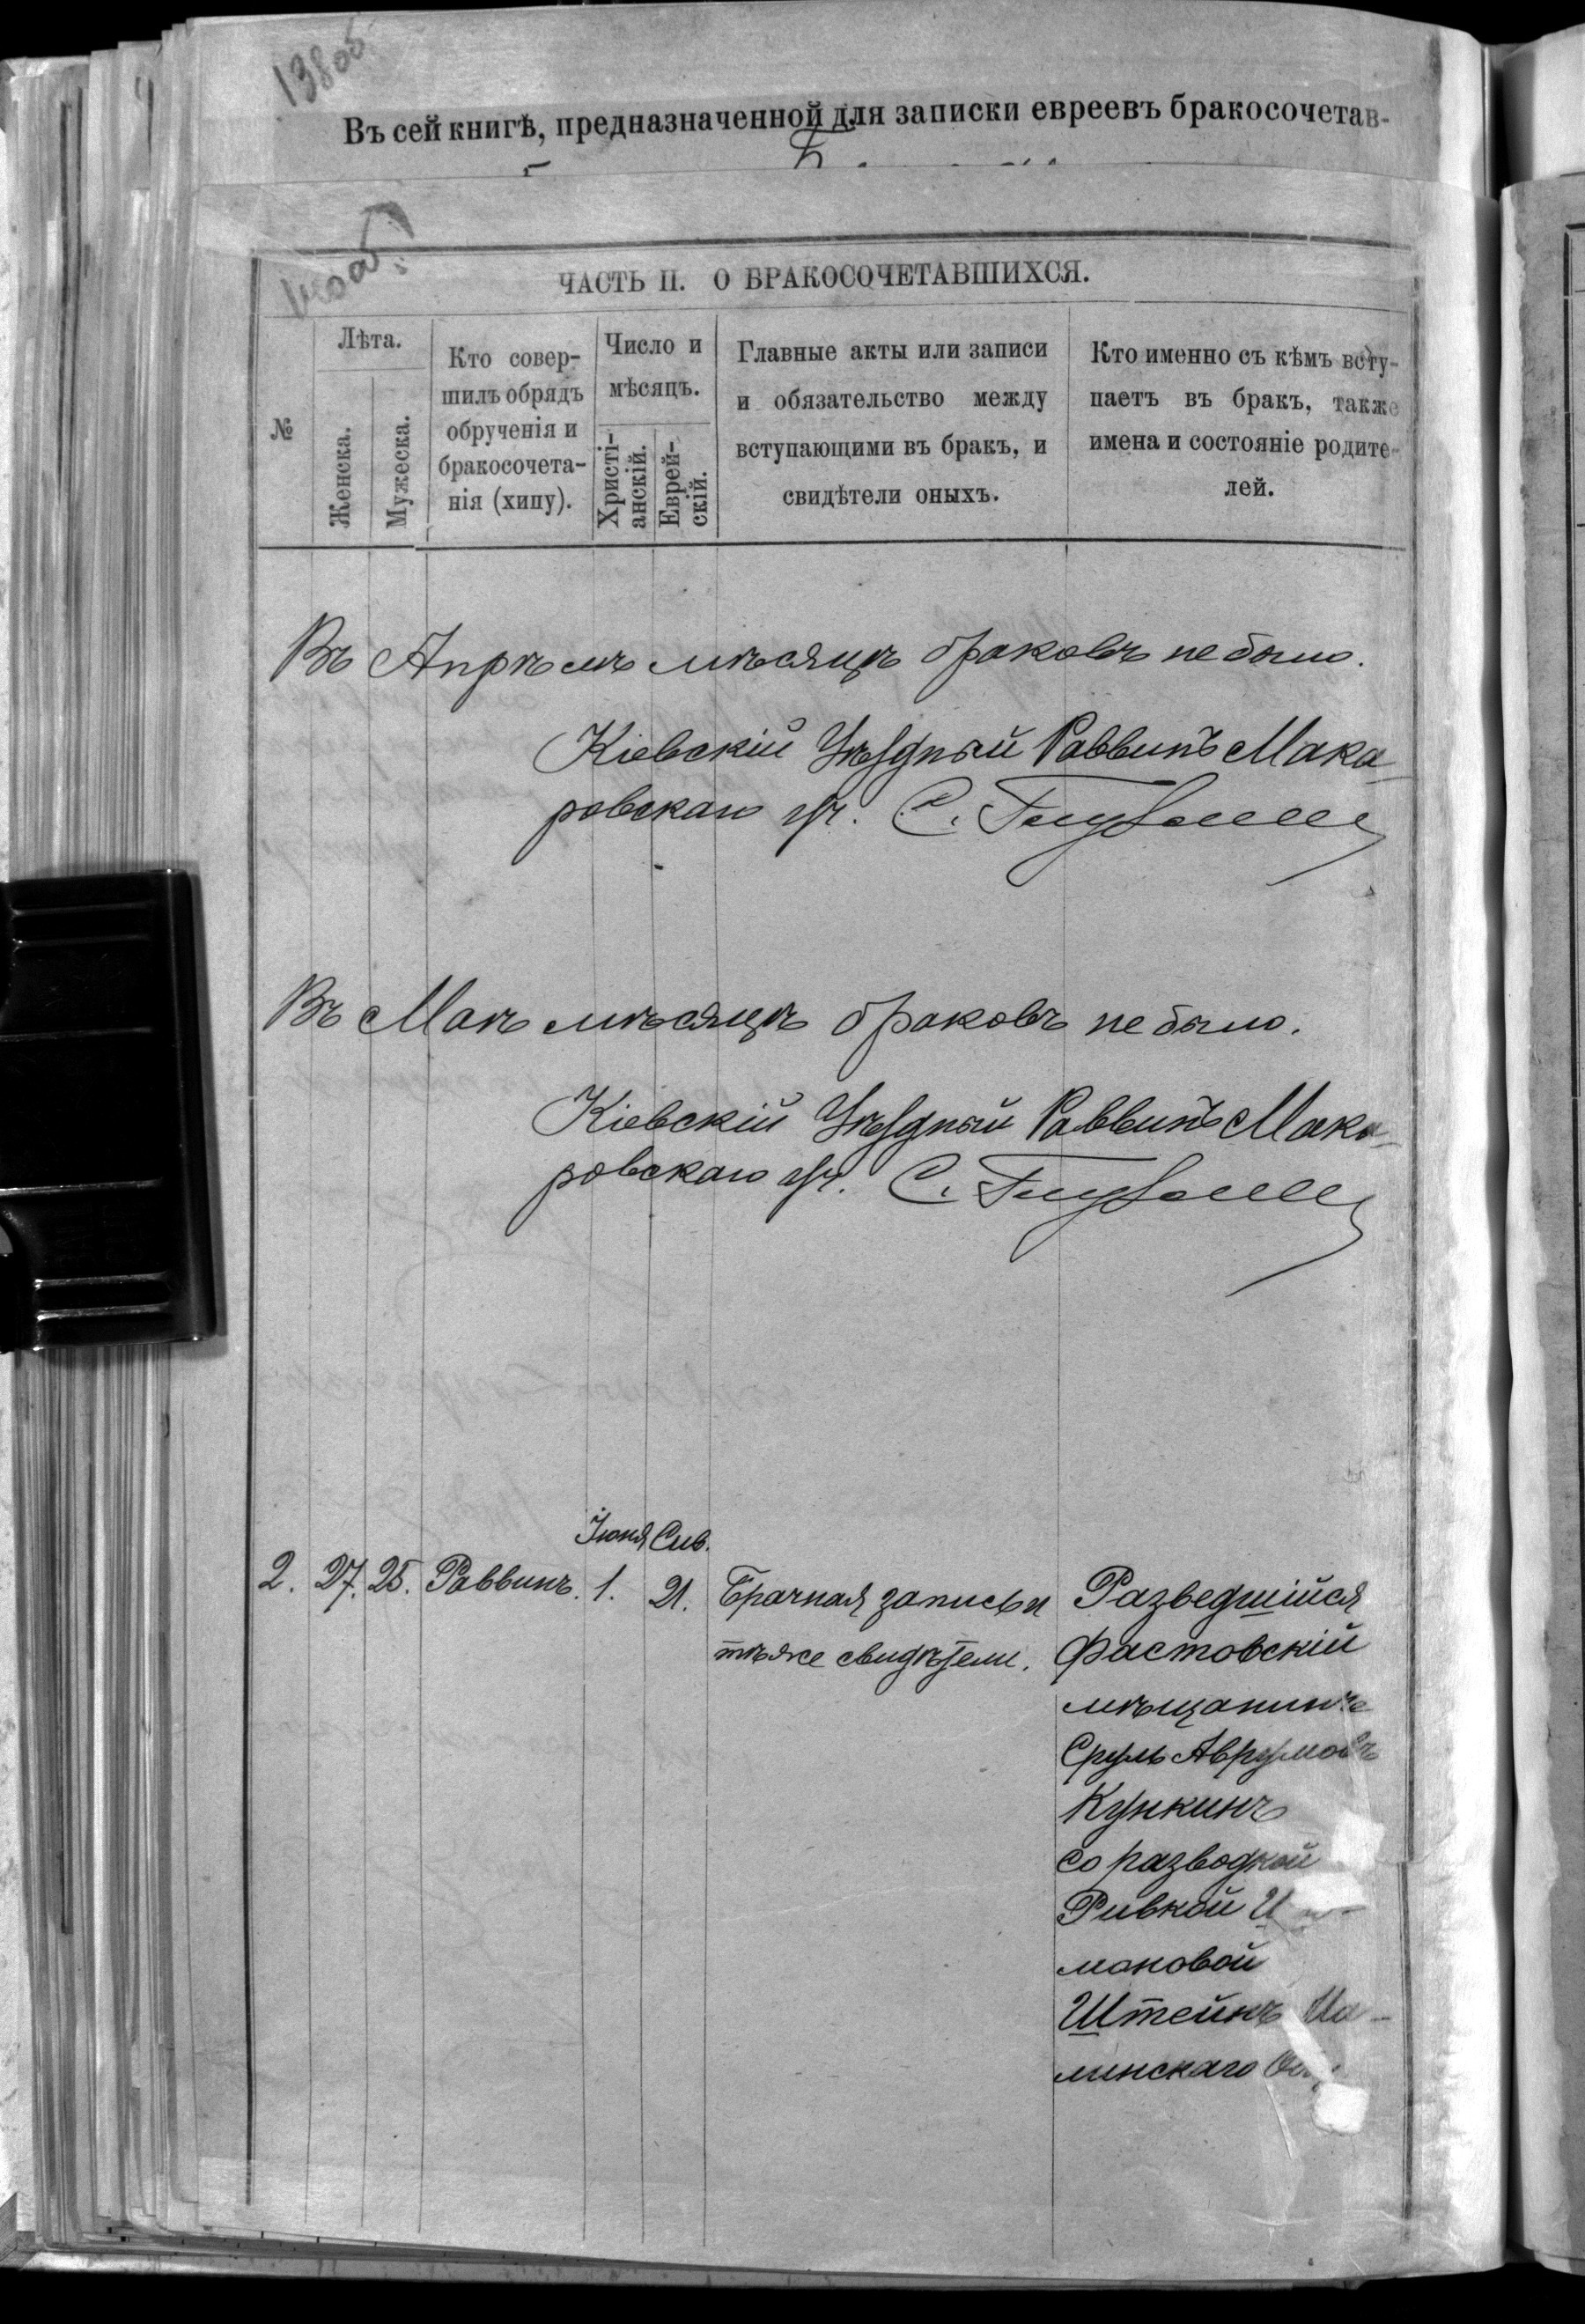 138 об
Въ сей книгѣ, предназначенной для записки евреевъ бракосочетав-
ЧАСТЬ II. О БРАКОСОЧЕТАВШИХСЯ.
№
Лѣта.
Женска.
Мужеска.
Кто совер-
шилъ обрядъ
обрученія и
бракосочета-
нія (хипу).
Число и
мѣсяцъ.
Христі-
анскій.
Еврей-
скій.
Главные акты или записи
и обязательство между
вступающими въ бракъ, и
свидѣтели оныхъ.
Кто именно съ кѣмъ всту-
паетъ въ бракъ, также
имена и состояніе родите-
лей.
Въ Апрѣлѣ мѣсяцѣ браковъ не было.
Кіевскій Уѣздный Раввинъ Мака-
ровскаго уч. С.
Въ Маѣ мѣсяцѣ браковъ не было.
Кіевскій Уѣздный Раввинъ Мака-
ровскаго уч. С.
Іюня Сив.
2. 27. 25. Раввинъ. 1. 21. Брачная запись и
тѣже свидѣтели.
Разведшійся
Фастовскій
мѣщанинъ
Сруль Аврумовъ
Кункинъ
со разводкой
Ривкой
мановой
Штейнъ
минскаго